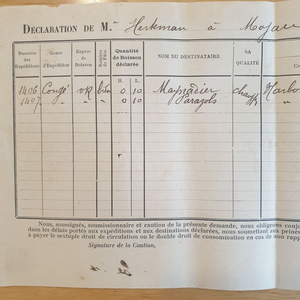 DÉCLARATION DE M. Herkman à Mojac
Numéros des Expéditions
Genre d'Expédition
Espèce de Boisson
Nombre de Fûts
Quantité de Boisson déclarée
NOM DU DESTINATAIRE
SA QUALITÉ
H. L.
1406 Congé 0 10 Maynadier
1407 " 0 10 Parazols "
Nous, soussignés, soumissionnaire et caution de la présente demande, nous obligeons conj
dans les délais portés aux expéditions et aux destinations déclarées, nous soumettant à
à payer le sextuple droit de circulation ou le double droit de consommation en cas de non rap
Signature de la Caution,